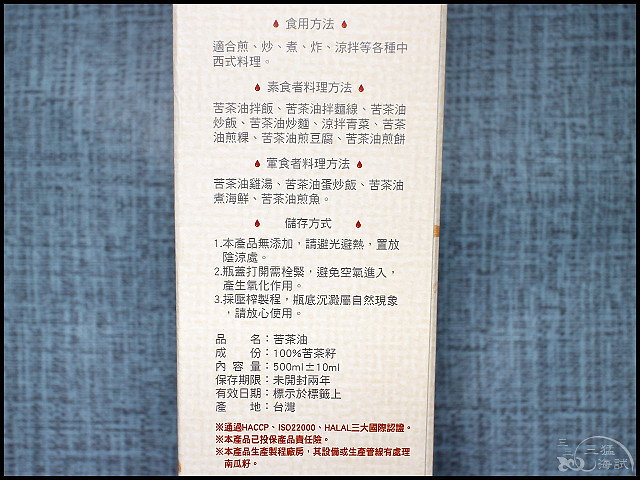 食用方法
適合煎、炒、煮、炸、涼拌等各種中
西式料理。
素食者料理方法
苦茶油拌飯、苦茶油拌麵線、苦茶油
炒飯、苦茶油炒麵、涼拌青菜、苦茶
油煎粿、苦茶油煎豆腐、苦茶油煎餅
葷食者料理方法
苦茶油雞湯、苦茶油蛋炒飯、苦茶油
煮海鮮、苦茶油煎魚。
儲存方式
1.本產品無添加，請避光避熱，置放
陰涼處。
2.瓶蓋打開需栓緊，避免空氣進入，
產生氧化作用。
3.採壓榨製程，瓶底沉澱屬自然現象
，請放心使用。
品　　名：苦茶油
成　　份：100%苦茶籽
內 容 量：500ml±10ml
保存期限：未開封兩年
有效日期：標示於標籤上
產　　地：台灣
※通過HACCP、ISO22000、HALAL三大國際認證。
※本產品已投保產品責任險。
※本產品生產製程廠房，其設備或生產管線有處理
南瓜籽。